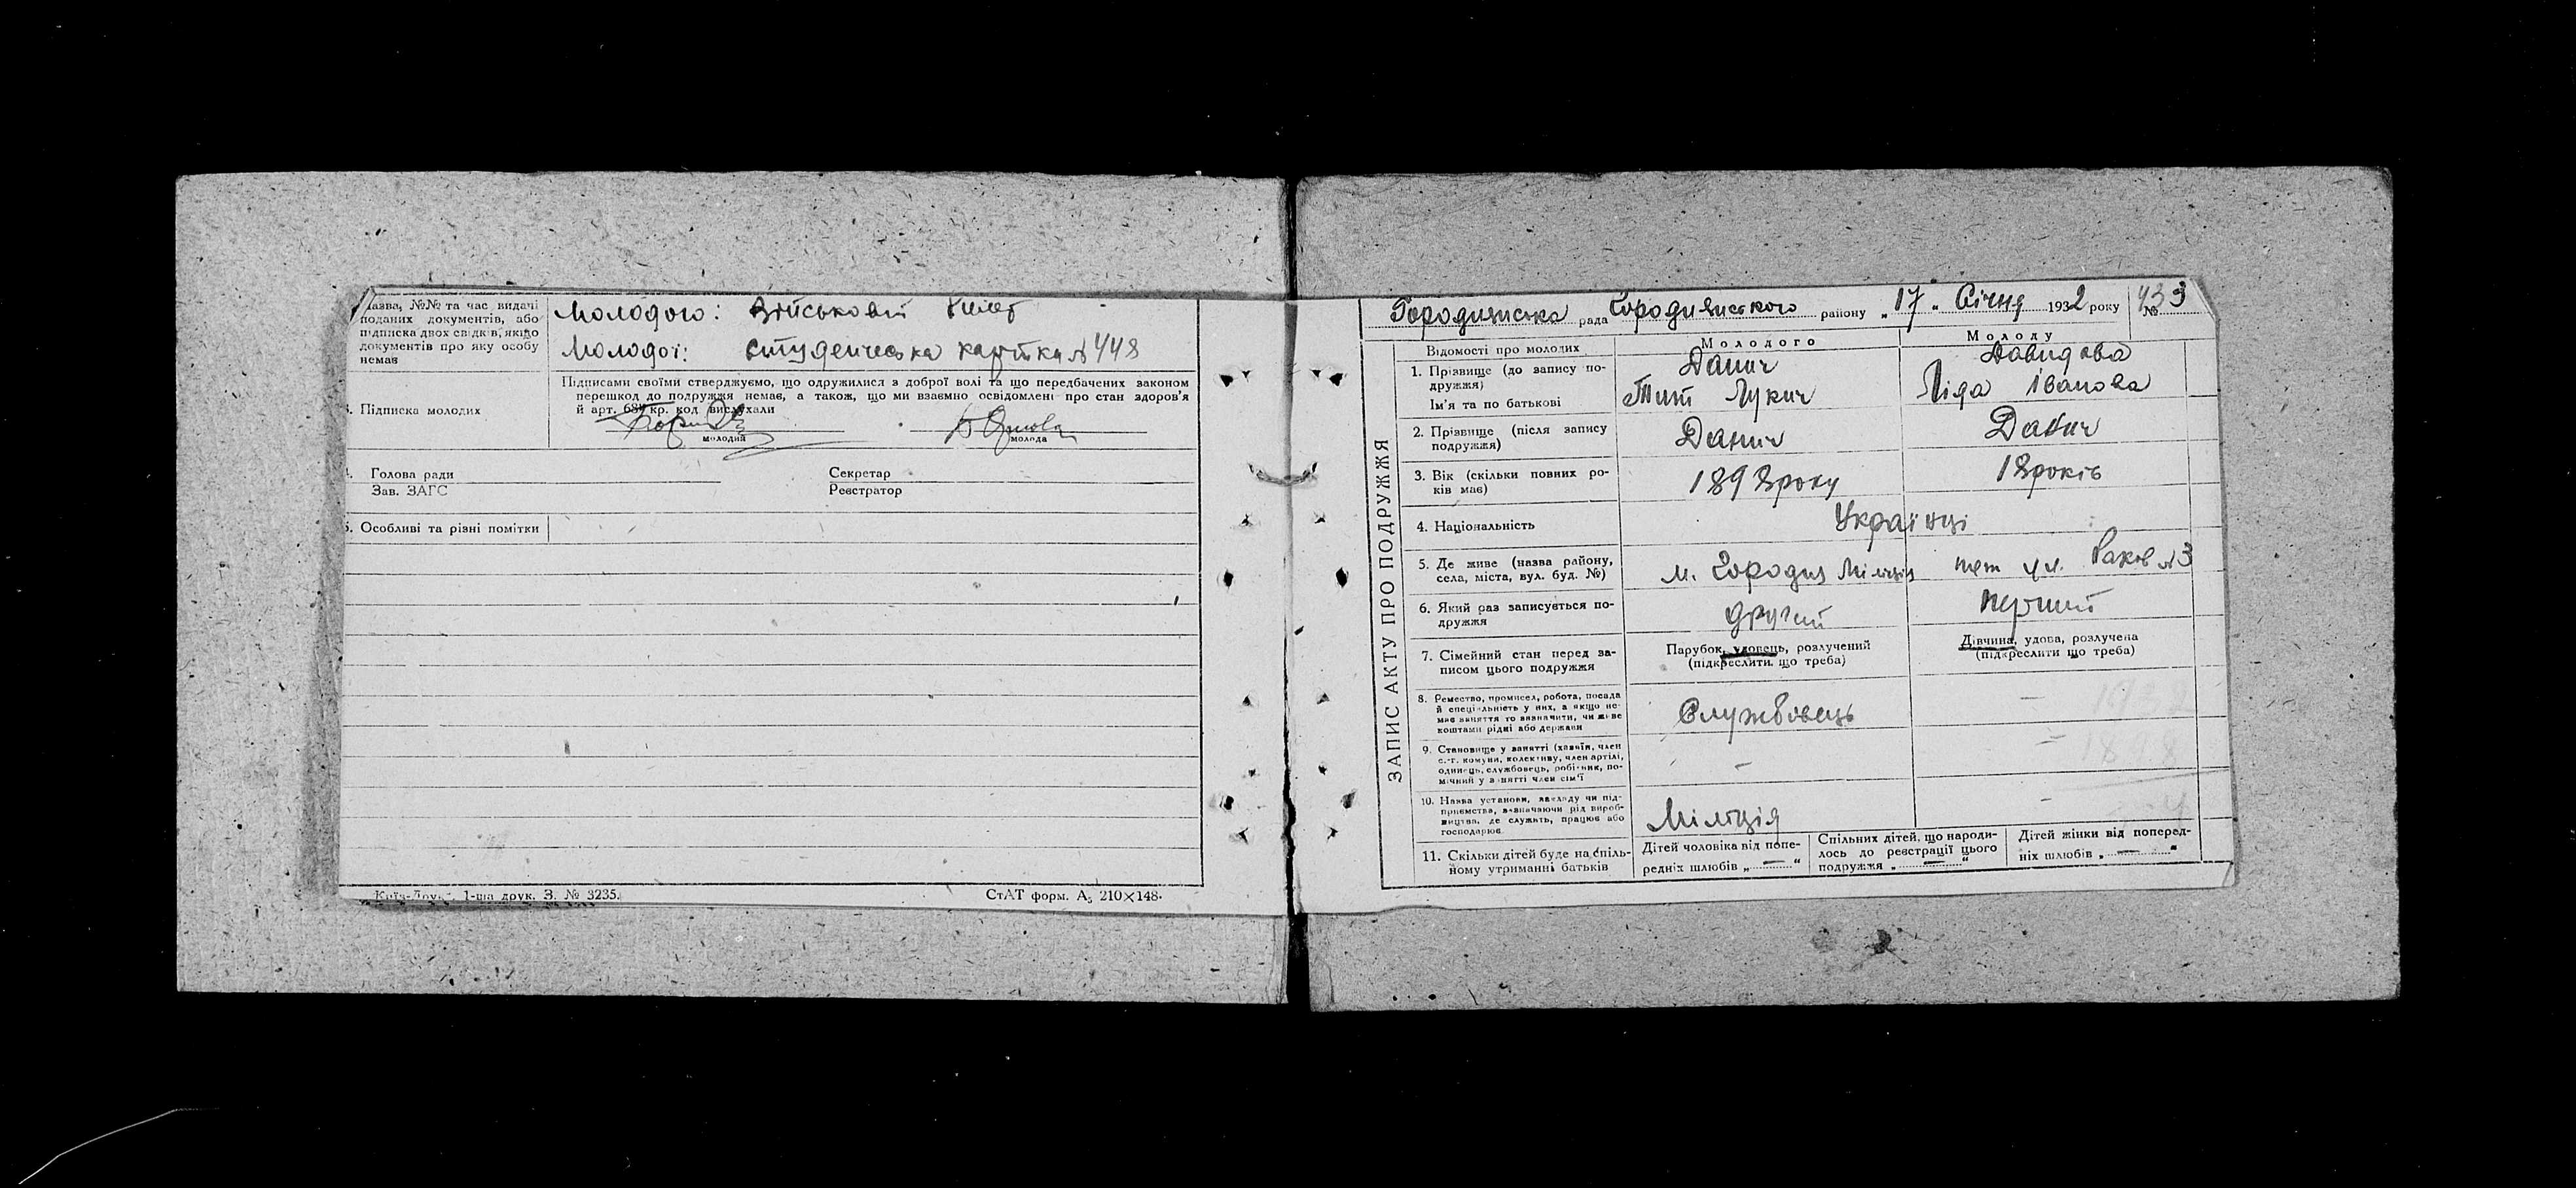 Назва, №№ та час видачі
поданих документів, або
підписка двох свідків, якщо
документів про яку особу
немає
Молодого: Військовий білет
Молодої: студенческа картка № 448
3. Підписка молодих
Підписами своїми стверджуємо, що одружилися з доброї волі та що передбачених законом
перешкод до подружжя немає, а також, що ми взаємно освідомлені про стан здоров'я
й арт. кр. код вислухали
молодий
молода
4. Голова ради
Секретар
Зав. ЗАГС
Реєстратор
5. Особливі та різні помітки
1-ша друк. З. № 3235.
СтАТ форм. А5 210×148.
ЗАПИС АКТУ ПРО ПОДРУЖЖЯ
Городиянська рада Городиянського району „17" Січня 1932 року № 433
Відомості про молодих
Молодого
Молоду
1. Прізвище (до запису по-
дружжя)
Данич
Давидова
Ім'я та по батькові
Тит Лукич
Ліда Іванова
2. Прізвище (після запису
подружжя)
Данич
Данич
3. Вік (скільки повних ро-
ків має)
1898 року
18 років
4. Національність
Українці
5. Де живе (назва району,
села, міста, вул. буд. №)
м. Городня Міліція
ул. №3
6. Який раз записується по-
дружжя
другий
перший
7. Сімейний стан перед за-
писом цього подружжя
Парубок, удовець, розлучений
(підкреслити, що треба)
Дівчина, удова, розлучена
(підкреслити що треба)
8. Ремество, промисел, робота, посада
й спеціяльність у них, а якщо не-
має заняття то визначити, чи живе
коштами рідні або держави
Службовець
–
9. Становище у занятті (хазяїн, член
с.-г. комуни, колективу, член артілі,
одинець, службовець, робітник, по-
мічний у занятті член сім'ї
–
–
10. Назва установи, закладу чи під-
приємства, визначаючи рід вироб-
ництва, де служить, працює або
господарює
Міліція
–
11. Скільки дітей буде на спіль-
ному утриманні батьків
Дітей чоловіка від попе-
редніх шлюбів „ — "
Спільних дітей, що народи-
лось до реєстрації цього
подружжя „ — "
Дітей жінки від поперед-
ніх шлюбів „ — "